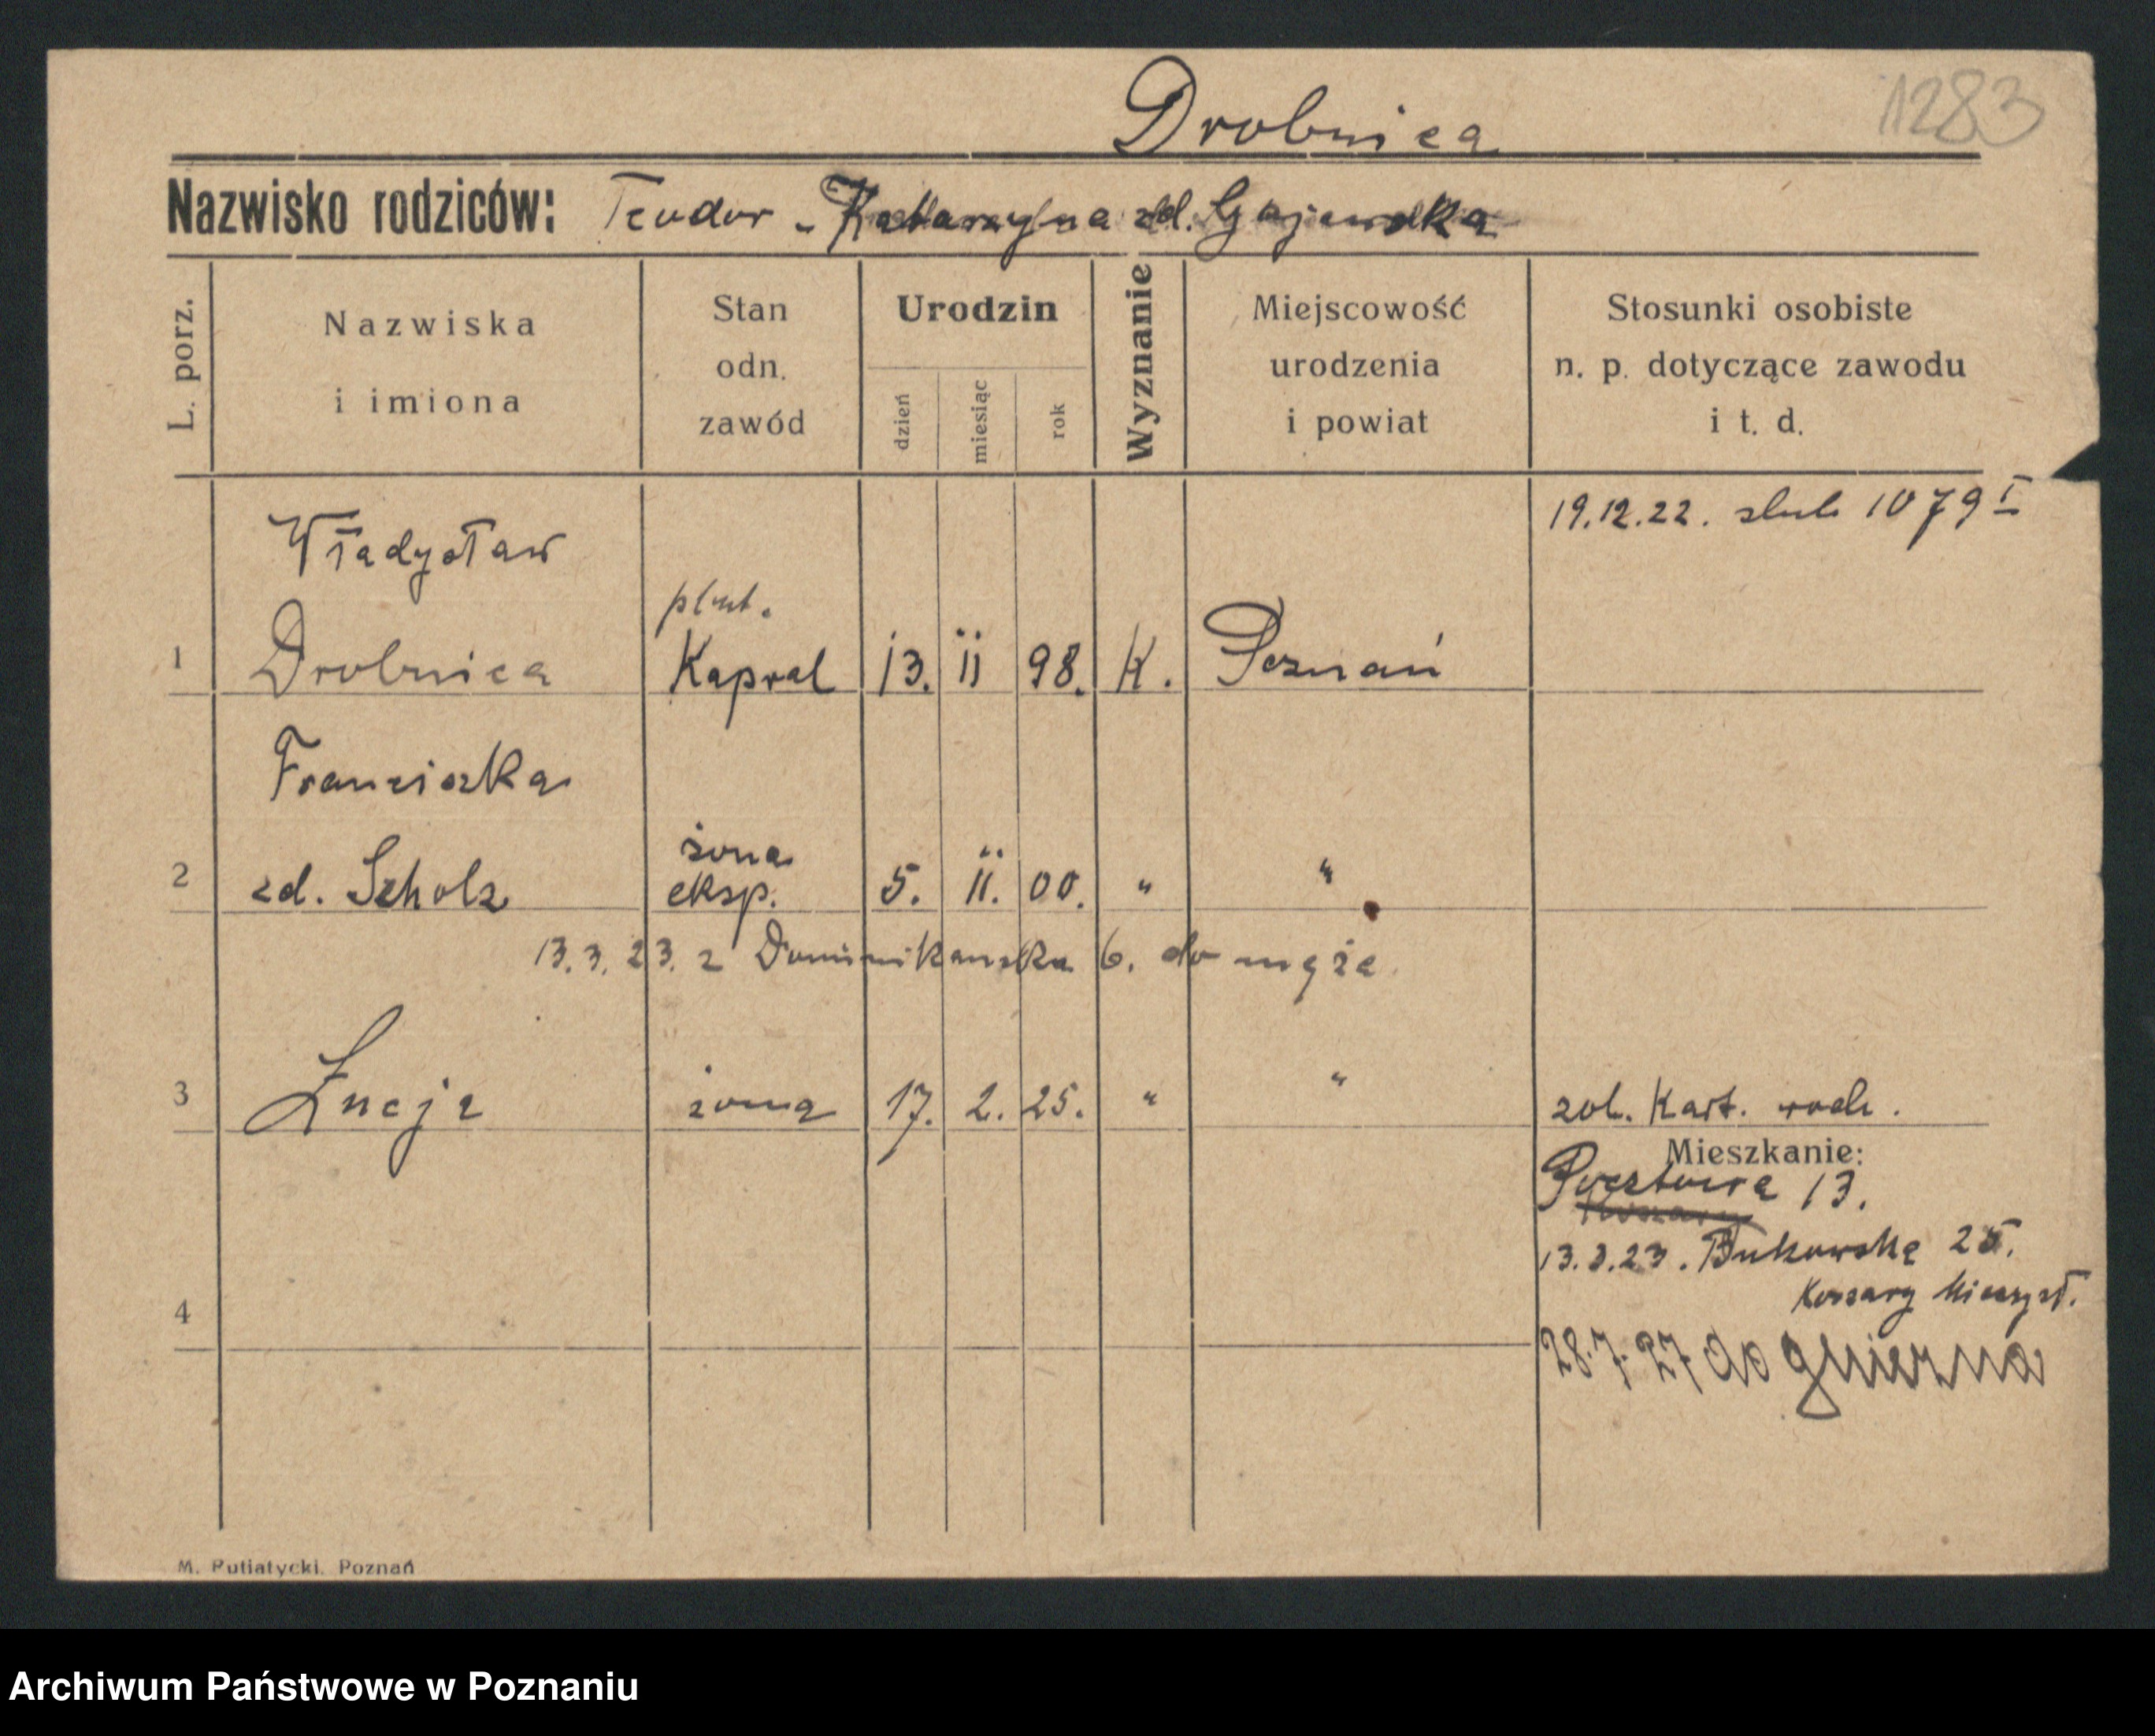 Drobnica
1283
Nazwisko rodziców: Teodor - Katarzyna zd. Gajewska
L. porz.
Nazwiska i imiona
Stan odn. zawód
Urodzin
dzień
miesiąc
rok
Wyznanie
Miejscowość urodzenia i powiat
Stosunki osobiste n. p. dotyczące zawodu i t. d.
19.12.22. slub 1079 I
Władysław
plut.
1 Drobnica Kapral 13. 11 98. K. Poznań
Franciszka
żona
2 zd. Scholz eksp. 5. 11. 00. " "
13.3.23. z Dominikanska 6. do męża
3 Łucja żona 17. 2. 25. " " zob. Kart. rodz.
Mieszkanie:
Pocztowa 13.
13.3.23. Bukowska 25.
Koszary
4
28.7.27 do gniezna
M. Putiatycki. Poznań
Archiwum Państwowe w Poznaniu